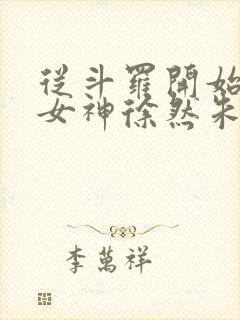 從斗羅開始
女神徐然朱
李萬祥